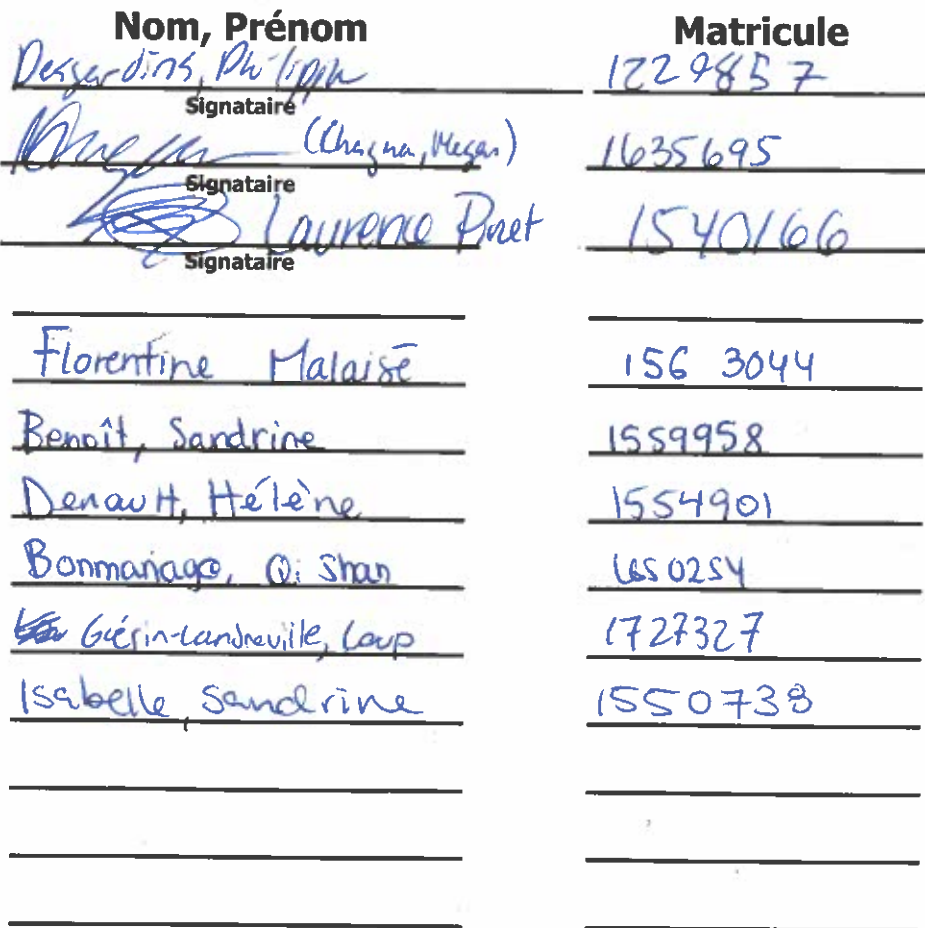 Nom, Prénom Matricule
Desjardins, Philippe 1229857
Signataire
(Chagna, Megan) 1635695
Signataire
Laurence Pinet 1540166
Signataire
Florentine Malaise 156 3044
Benoît, Sandrine 1559958
Denault, Hélène 1554901
Bonmanago, Qi Shan 1650254
Guérin-Landreville, Loup 1727327
Isabelle, Sandrine 1550738